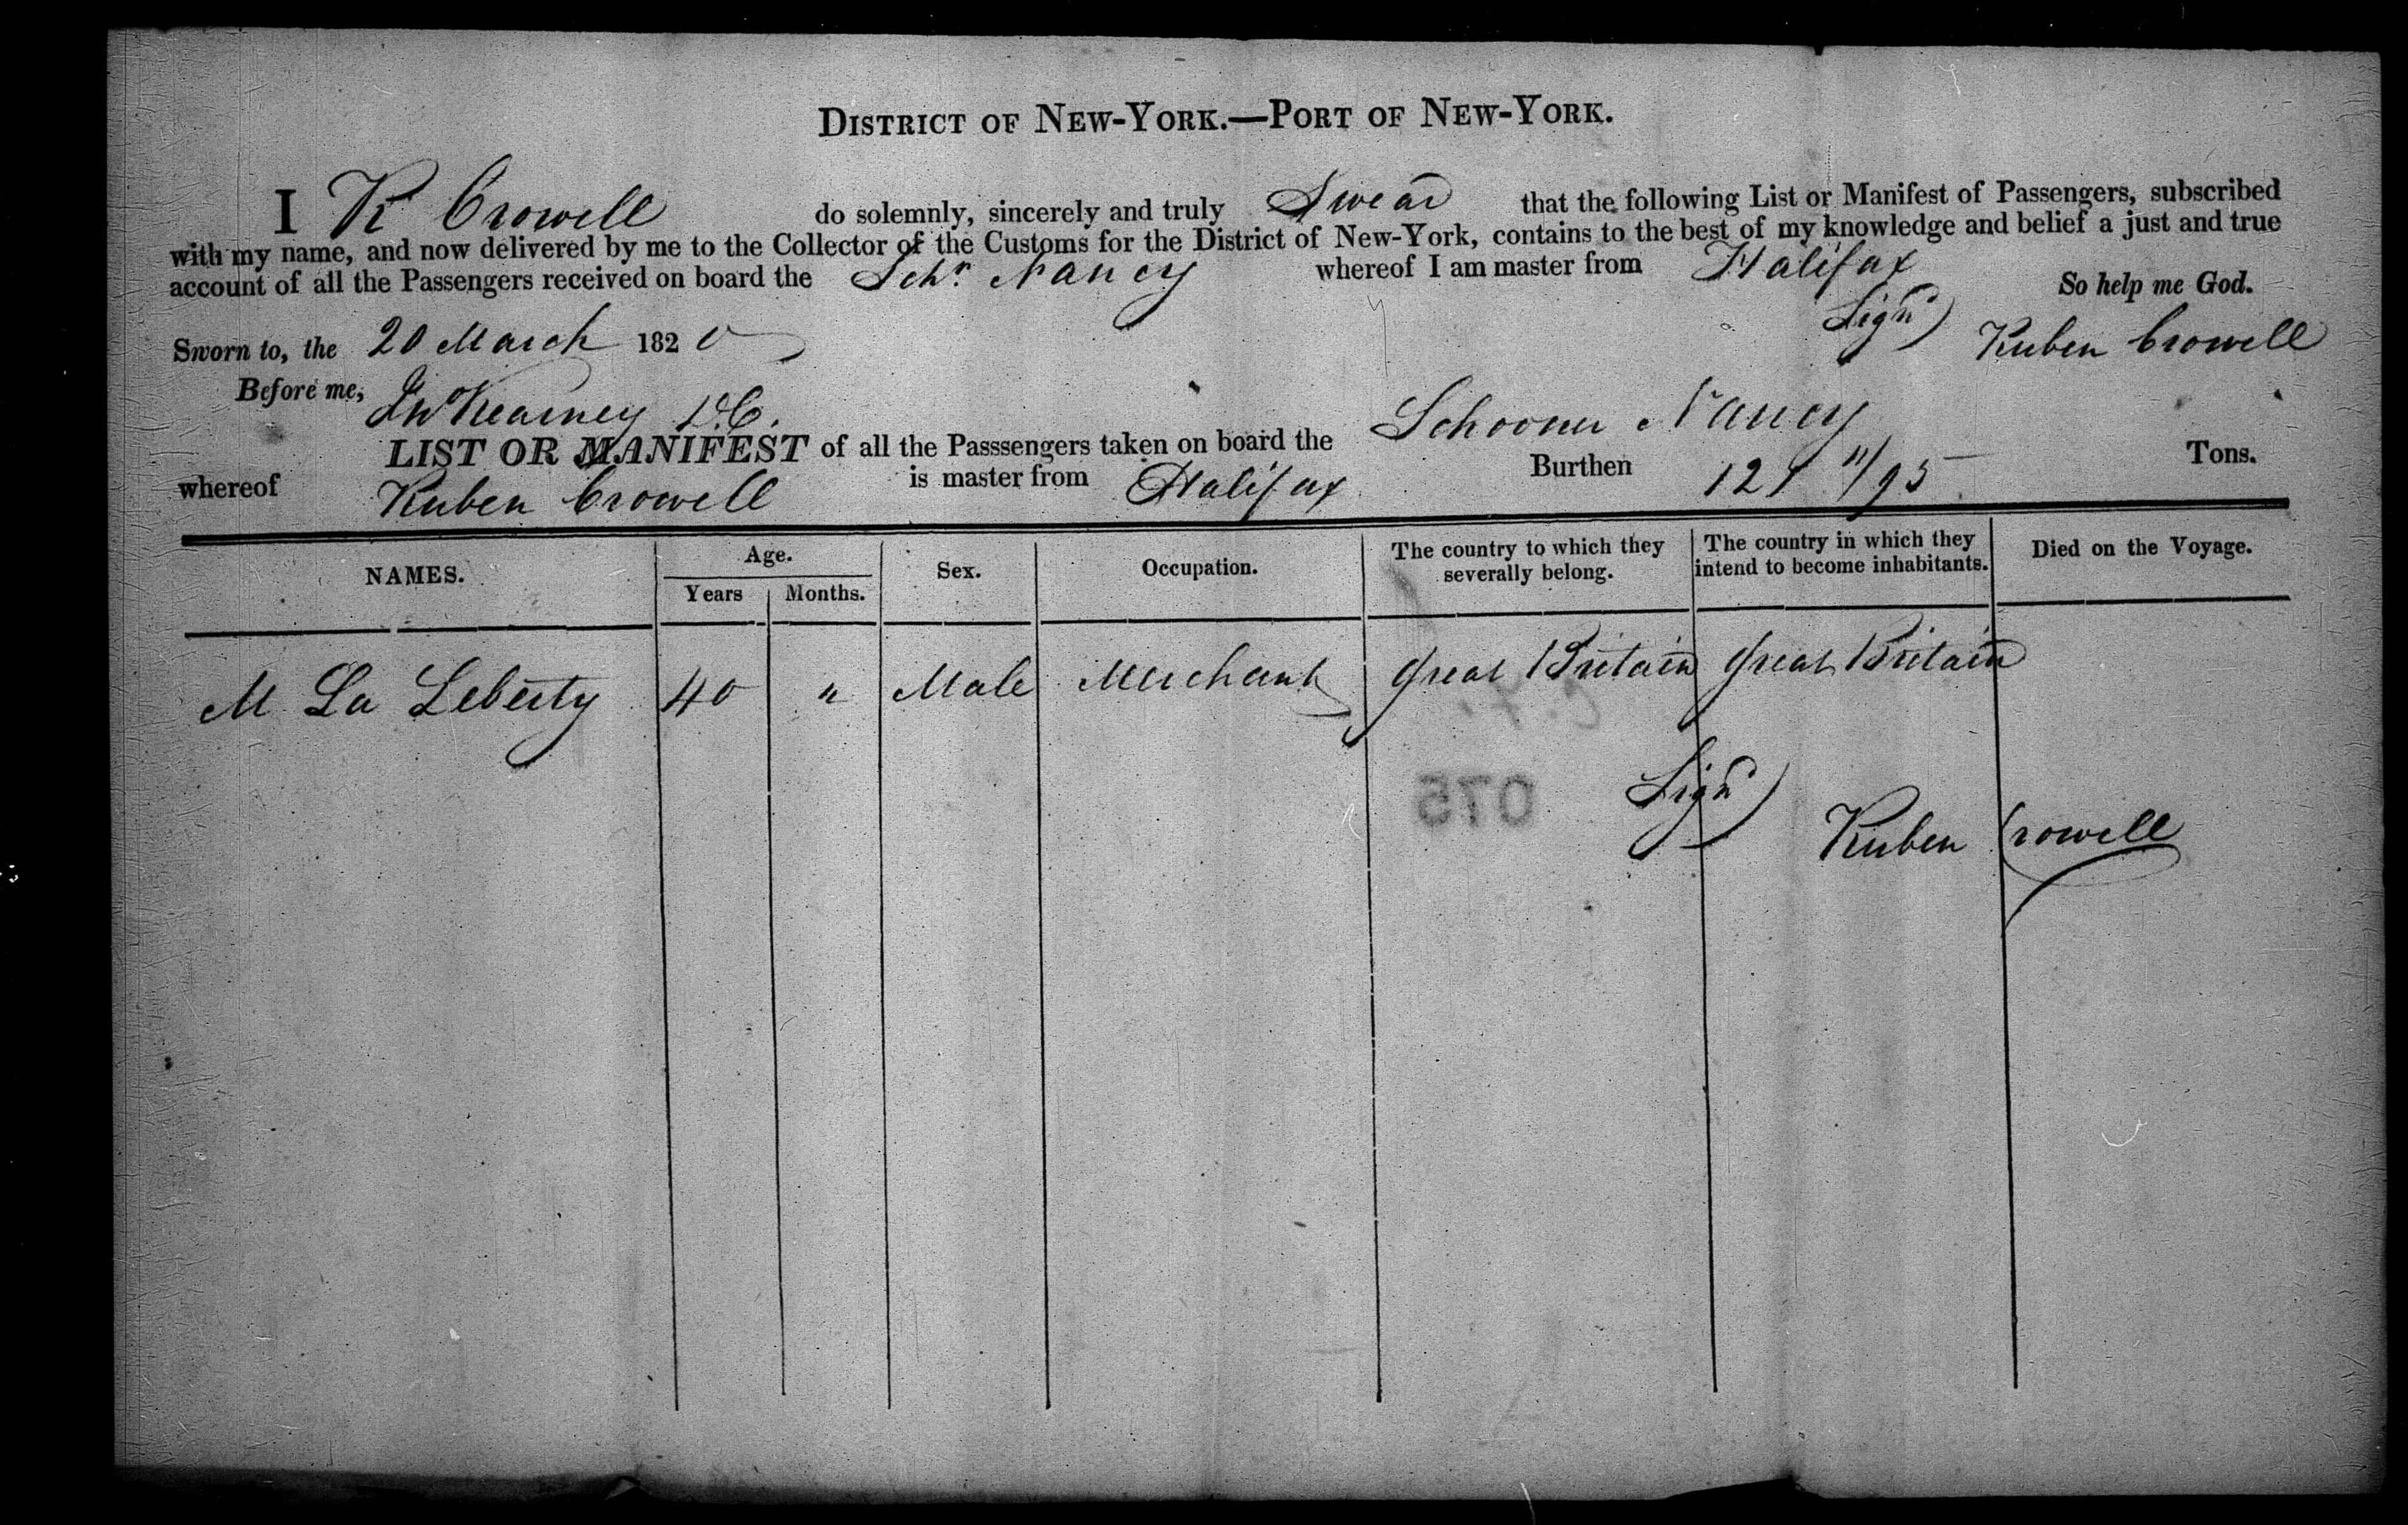 DISTRICT OF NEW-YORK.—PORT OF NEW-YORK.
I R Crowell do solemnly, sincerely and truly Swear that the following List or Manifest of Passengers, subscribed
with my name, and now delivered by me to the Collector of the Customs for the District of New-York, contains to the best of my knowledge and belief a just and true
account of all the Passengers received on board the Schr. Nancy whereof I am master from Halifax
So help me God.
Sworn to, the 20 March 1820
Signd) Ruben Crowell
Before me, Kearney D.C.
LIST OR MANIFEST of all the Passsengers taken on board the Schooner Nancy
whereof Ruben Crowell is master from Halifax Burthen 121 11/95 Tons.
NAMES. Age. Sex. Occupation. The country to which they severally belong. The country in which they intend to become inhabitants. Died on the Voyage.
Years Months.
M La Leberty 40 " Male Merchant Great Britain Great Britain
075
Signd) Ruben Crowell